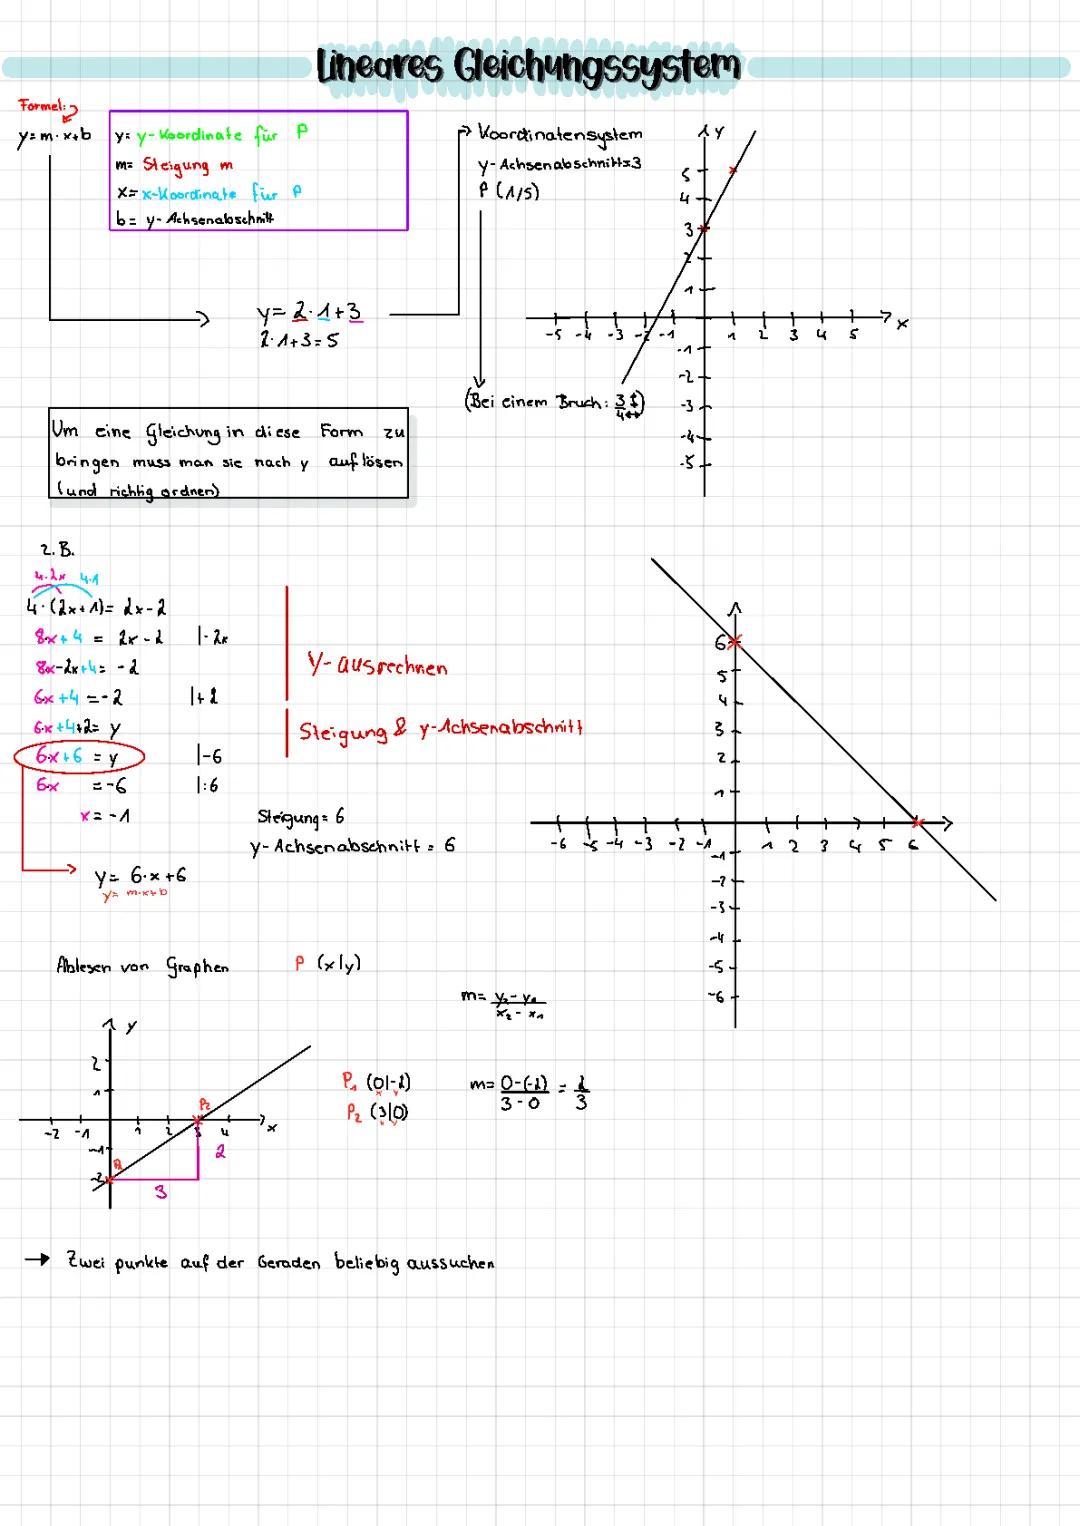 Lineares Gleichungssystem
Formel:
y=m·x+b
y= y-Koordinate für P
m= Steigung m
x= x-Koordinate für P
b= y-Achsenabschnitt
y= 2·1+3
2·1+3=5
Koordinatensystem
y-Achsenabschnitt=3
P (1/5)
(Bei einem Bruch: 3↕/4↔)
y
5
4
3
2
1
-5 -4 -3 -2 -1 1 2 3 4 5 x
-1
-2
-3
-4
-5
Um eine Gleichung in diese Form zu
bringen muss man sie nach y auflösen
(und richtig ordnen)
z.B.
4·2x 4·1
4·(2x+1)= 2x-2
8x+4 = 2x-2 |-2x
8x-2x+4= -2
6x+4=-2 |+2
6x+4+2= y
6x+6 = y |-6
6x =-6 |:6
x=-1
y= 6·x+6
y= m·x+b
Y-ausrechnen
Steigung & y-Achsenabschnitt
Steigung= 6
y-Achsenabschnitt = 6
6
5
4
3
2
1
-6 -5 -4 -3 -2 -1 1 2 3 4 5 6
-1
-2
-3
-4
-5
-6
Ablesen von Graphen P (x|y)
m= y₂-y₁/x₂-x₁
y
2
1
-2 -1 1 2 3 4 x
-1
-2
P₂
P₁
2
3
P₁ (0|-2)
x y
P₂ (3|0)
x y
m= 0-(-2)/3-0 = 2/3
→ Zwei punkte auf der Geraden beliebig aussuchen